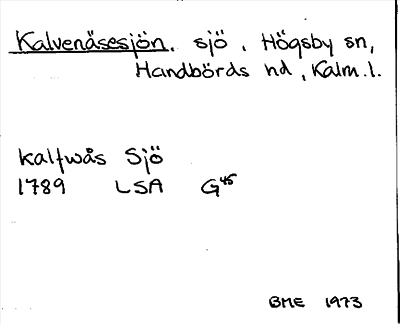 Kalvenäsesjön. sjö. Högsby sn,
Handbörds hd, Kalm.l.
Kalfwås Sjö
1789 LSA G45
BME 1973